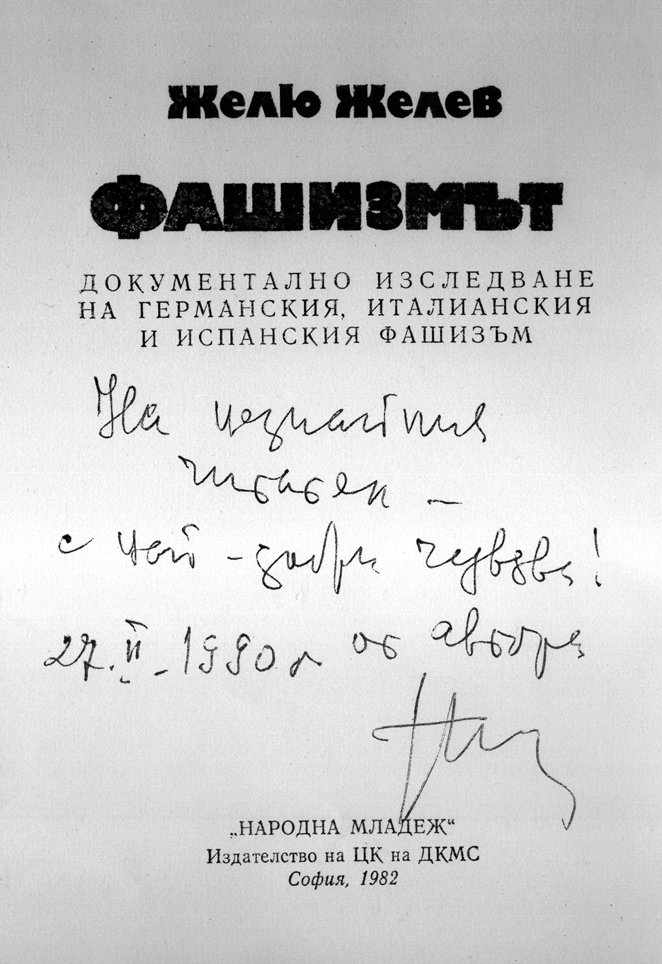 Желю Желев
ФАШИЗМЪТ
ДОКУМЕНТАЛНО ИЗСЛЕДВАНЕ
НА ГЕРМАНСКИЯ, ИТАЛИАНСКИЯ
И ИСПАНСКИЯ ФАШИЗЪМ
На непознатия
читател –
с най-добри чувства!
27.II.1990 г от автора
„НАРОДНА МЛАДЕЖ“
Издателство на ЦК на ДКМС
София, 1982